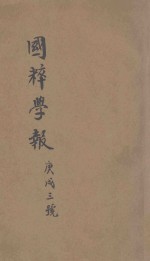 國粹學報
庚戌三號